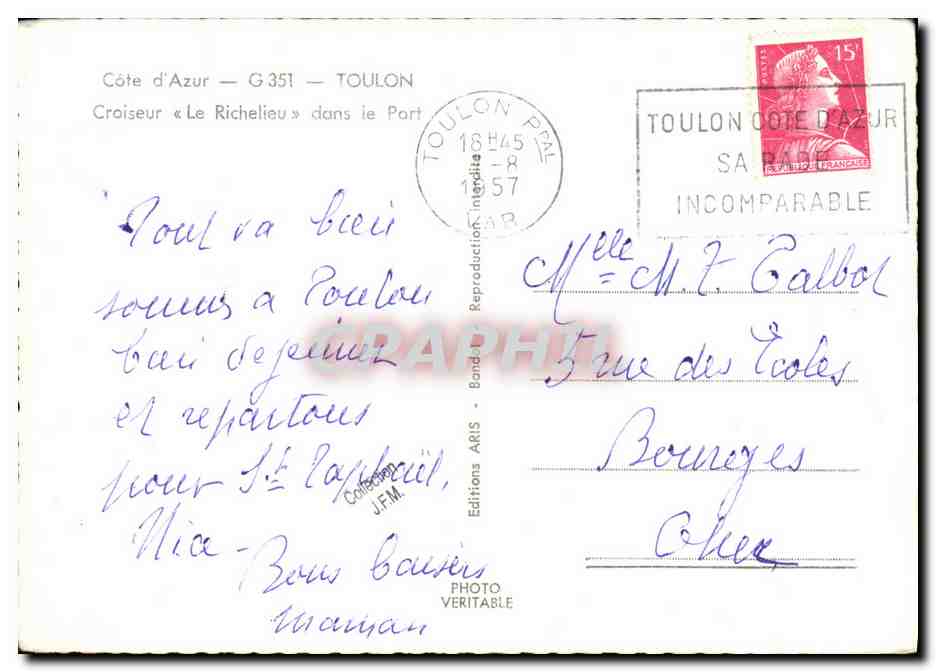 Côte d'Azur — G 351 — TOULON
Croiseur « Le Richelieu » dans le Port
TOULON PPAL
18H45
-8
1957
VAR
TOULON COTE D'AZUR
SA RADE
INCOMPARABLE
POSTES
15F
REPUBLIQUE FRANÇAISE
Tout va bien
sommes a Toulon
bien dejeuner
et repartons
pour St Raphaël,
Nice -
Bons baisers
maman
Collection
J.F.M.
Editions ARIS - Bandol Reproduction interdite
PHOTO
VERITABLE
Mlle M. T. Talbot
5 rue des Ecoles
Bourges
Cher
GRAPHI